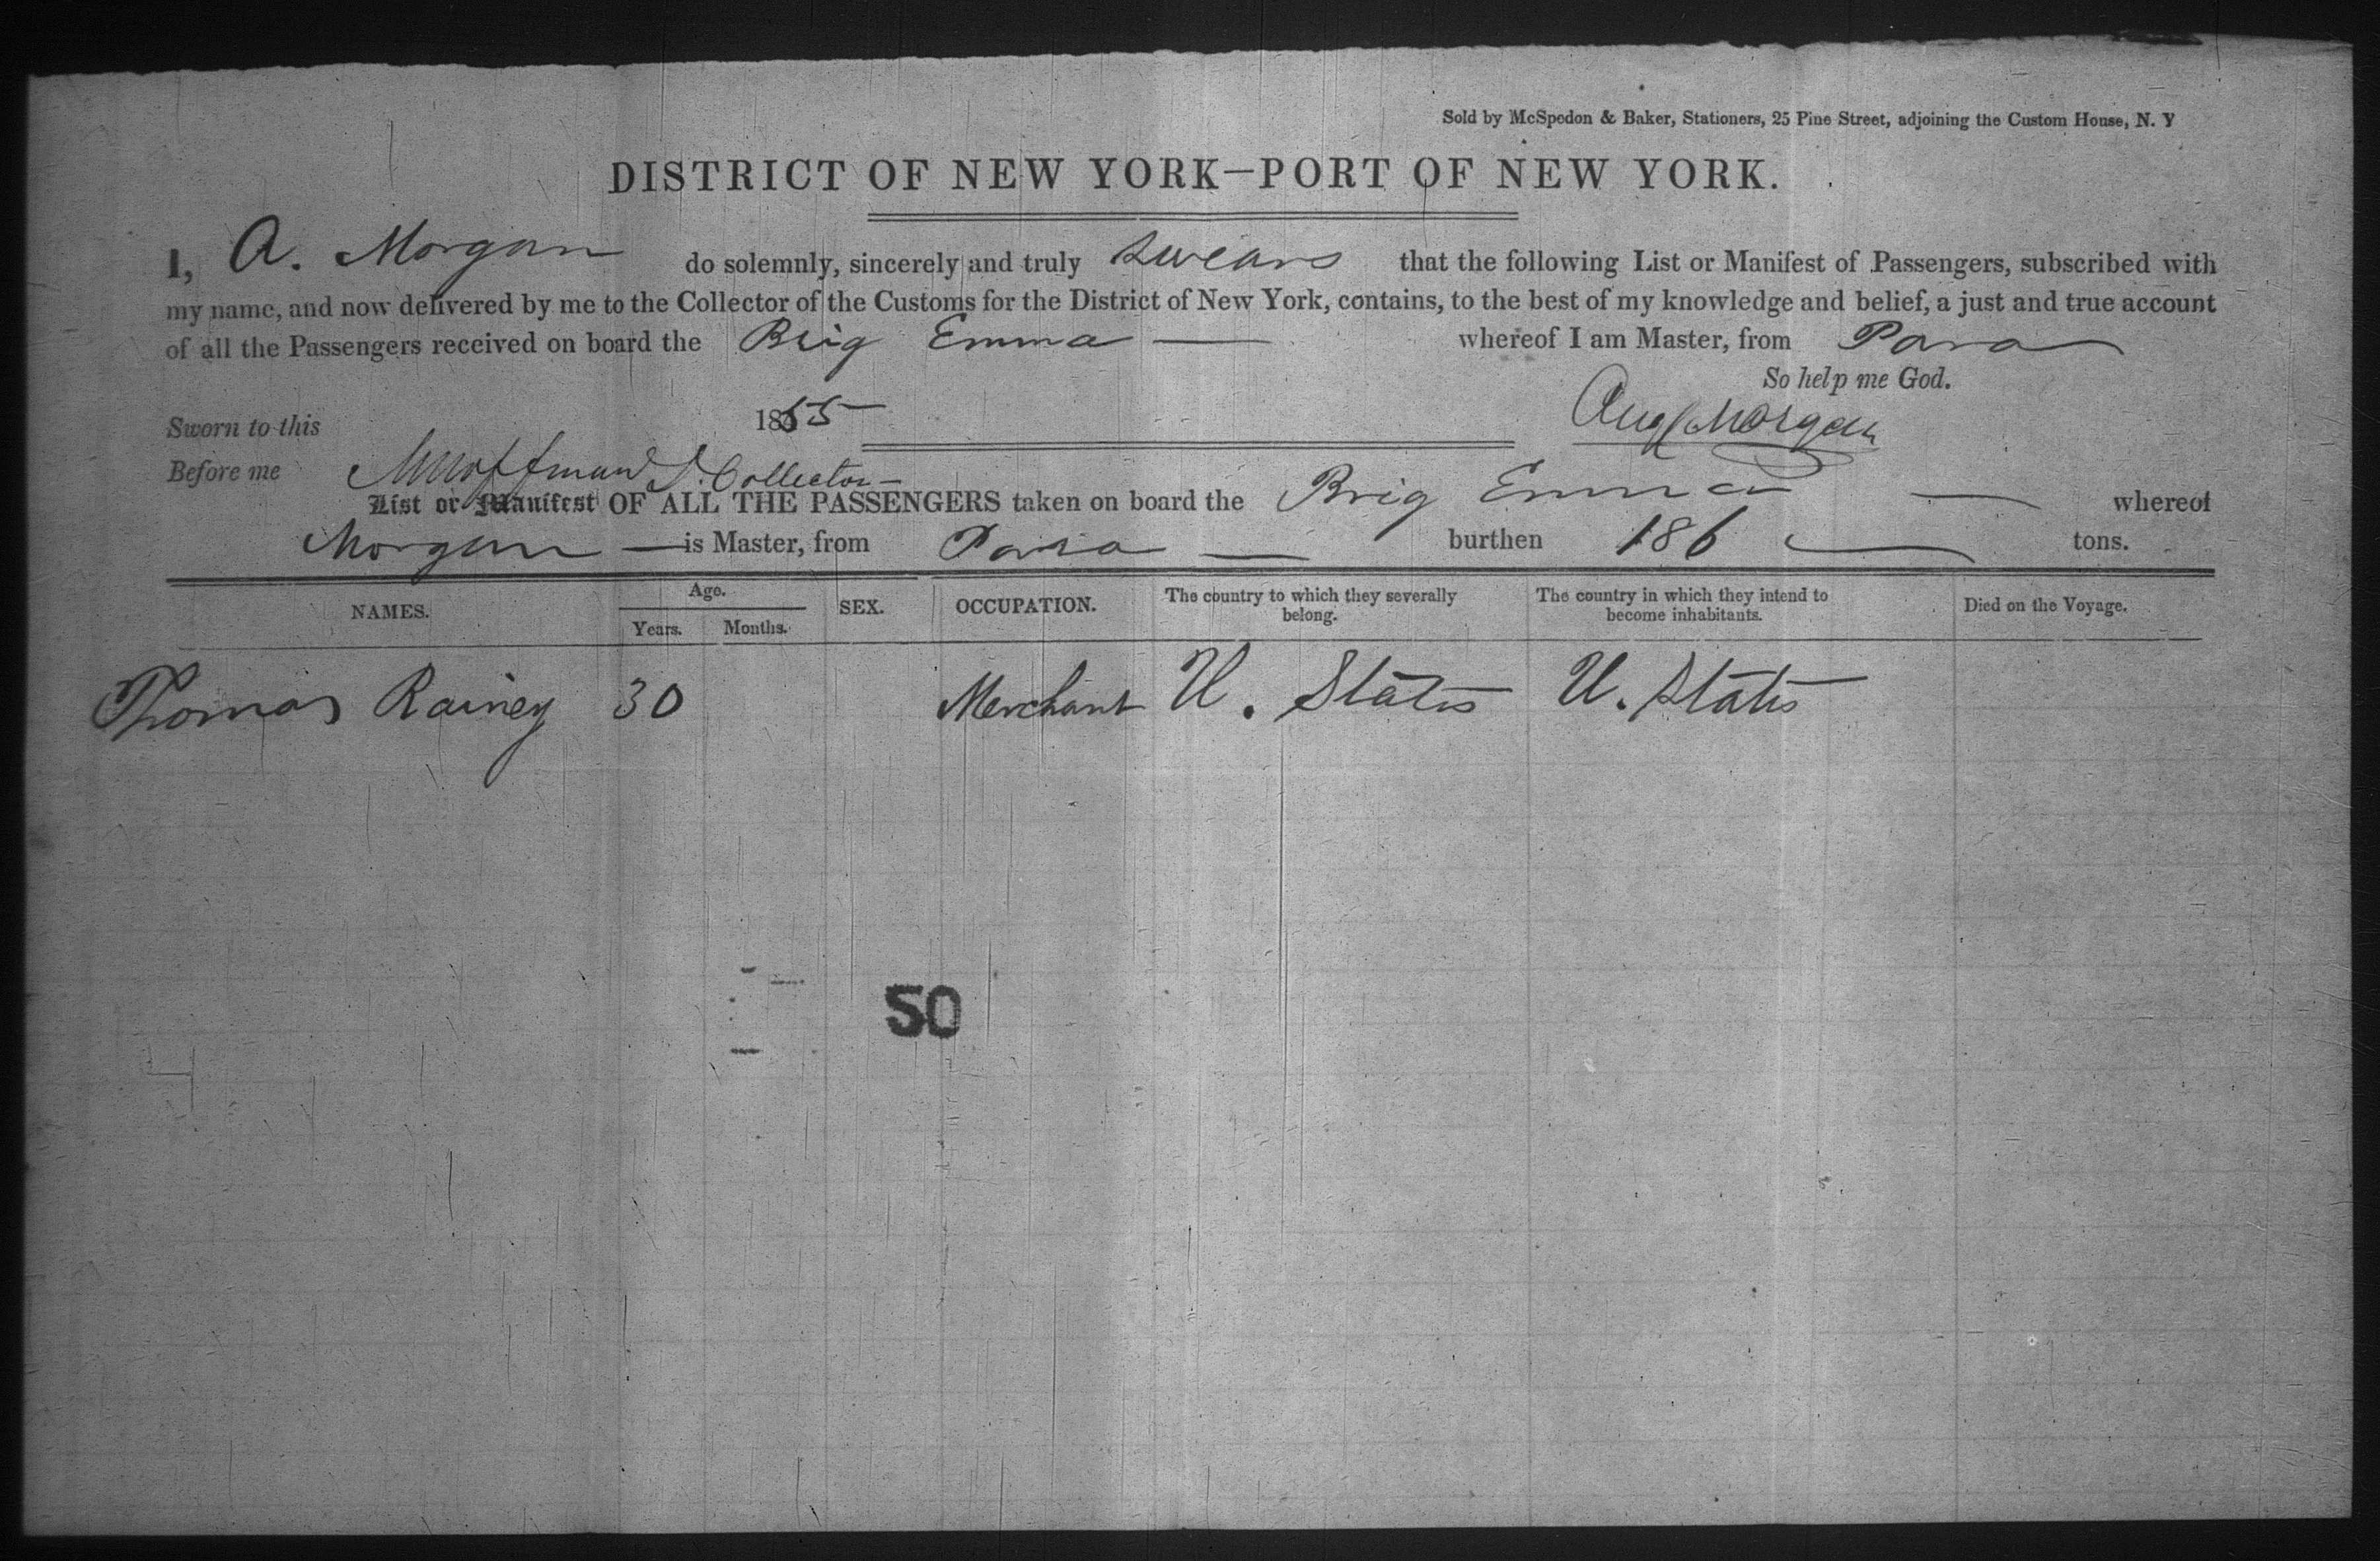 Sold by McSpedon & Baker, Stationers, 25 Pine Street, adjoining the Custom House, N. Y
DISTRICT OF NEW YORK—PORT OF NEW YORK.
I, A. Morgan do solemnly, sincerely and truly swears that the following List or Manifest of Passengers, subscribed with
my name, and now delivered by me to the Collector of the Customs for the District of New York, contains, to the best of my knowledge and belief, a just and true account
of all the Passengers received on board the Brig Emma — whereof I am Master, from Para
So help me God.
Sworn to this 1855 Aug Morgan
Before me Hoffman D. Collector
List or Manifest OF ALL THE PASSENGERS taken on board the Brig Emma — whereof
Morgan — is Master, from Para — burthen 186 tons.
NAMES. Age. Years. Months. SEX. OCCUPATION. The country to which they severally belong. The country in which they intend to become inhabitants. Died on the Voyage.
Thomas Rainey 30 Merchant U. States U. States
50